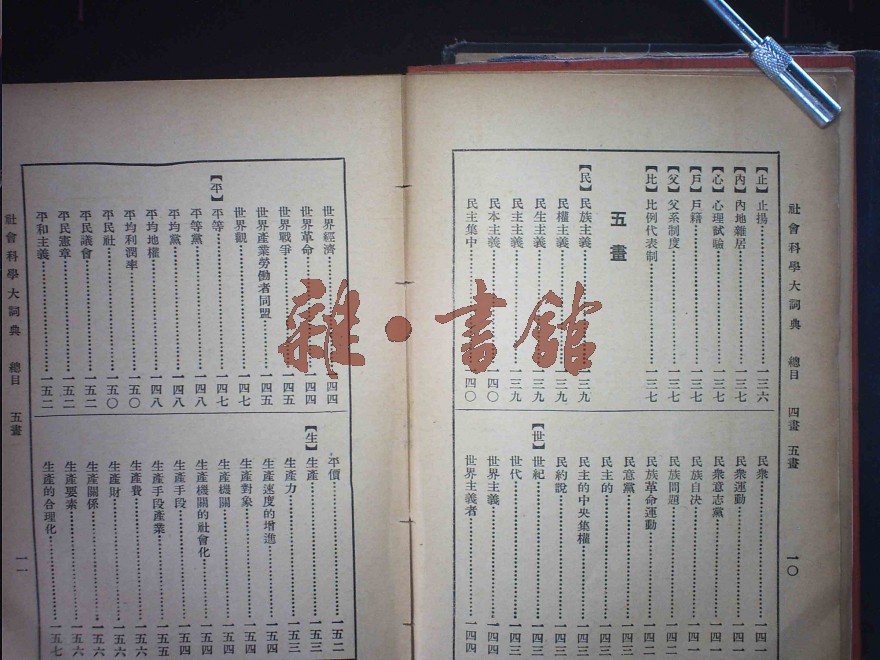 社會科學大詞典 總目 四畫 五畫 一〇
【止】止揚 一三六
【內】內地雜居 一三七
【心】心理試驗 一三七
【戶】戶籍 一三七
【父】父系制度 一三七
【比】比例代表制 一三七
五畫
【民】民族主義 一三九
民權主義 一三九
民生主義 一三九
民主主義 一三九
民本主義 一四〇
民主集中 一四〇
民衆 一四一
民衆運動 一四一
民衆意志黨 一四一
民族自決 一四一
民族問題 一四二
民族革命運動 一四二
民意黨 一四三
民主的 一四三
民主的中央集權 一四三
民約說 一四三
【世】世紀 一四三
世代 一四三
世界主義 一四四
世界主義者 一四四
世界經濟 一四四
世界革命 一四四
世界戰爭 一四五
世界產業勞働者同盟 一四五
世界觀 一四七
【平】平等 一四七
平等黨 一四八
平均黨 一四八
平均地權 一四八
平均利潤率 一五〇
平民社 一五〇
平民議會 一五二
平民憲章 一五二
平和主義 一五二
平價 一五二
【生】生產 一五三
生產力 一五三
生產速度的增進 一五四
生產對象 一五四
生產機關 一五四
生產機關的社會化 一五四
生產手段 一五四
生產手段產業 一五五
生產費 一五六
生產財 一五六
生產關係 一五六
生產要素 一五六
生產的合理化 一五七
社會科學大詞典 總目 五畫 一一
雜·書館